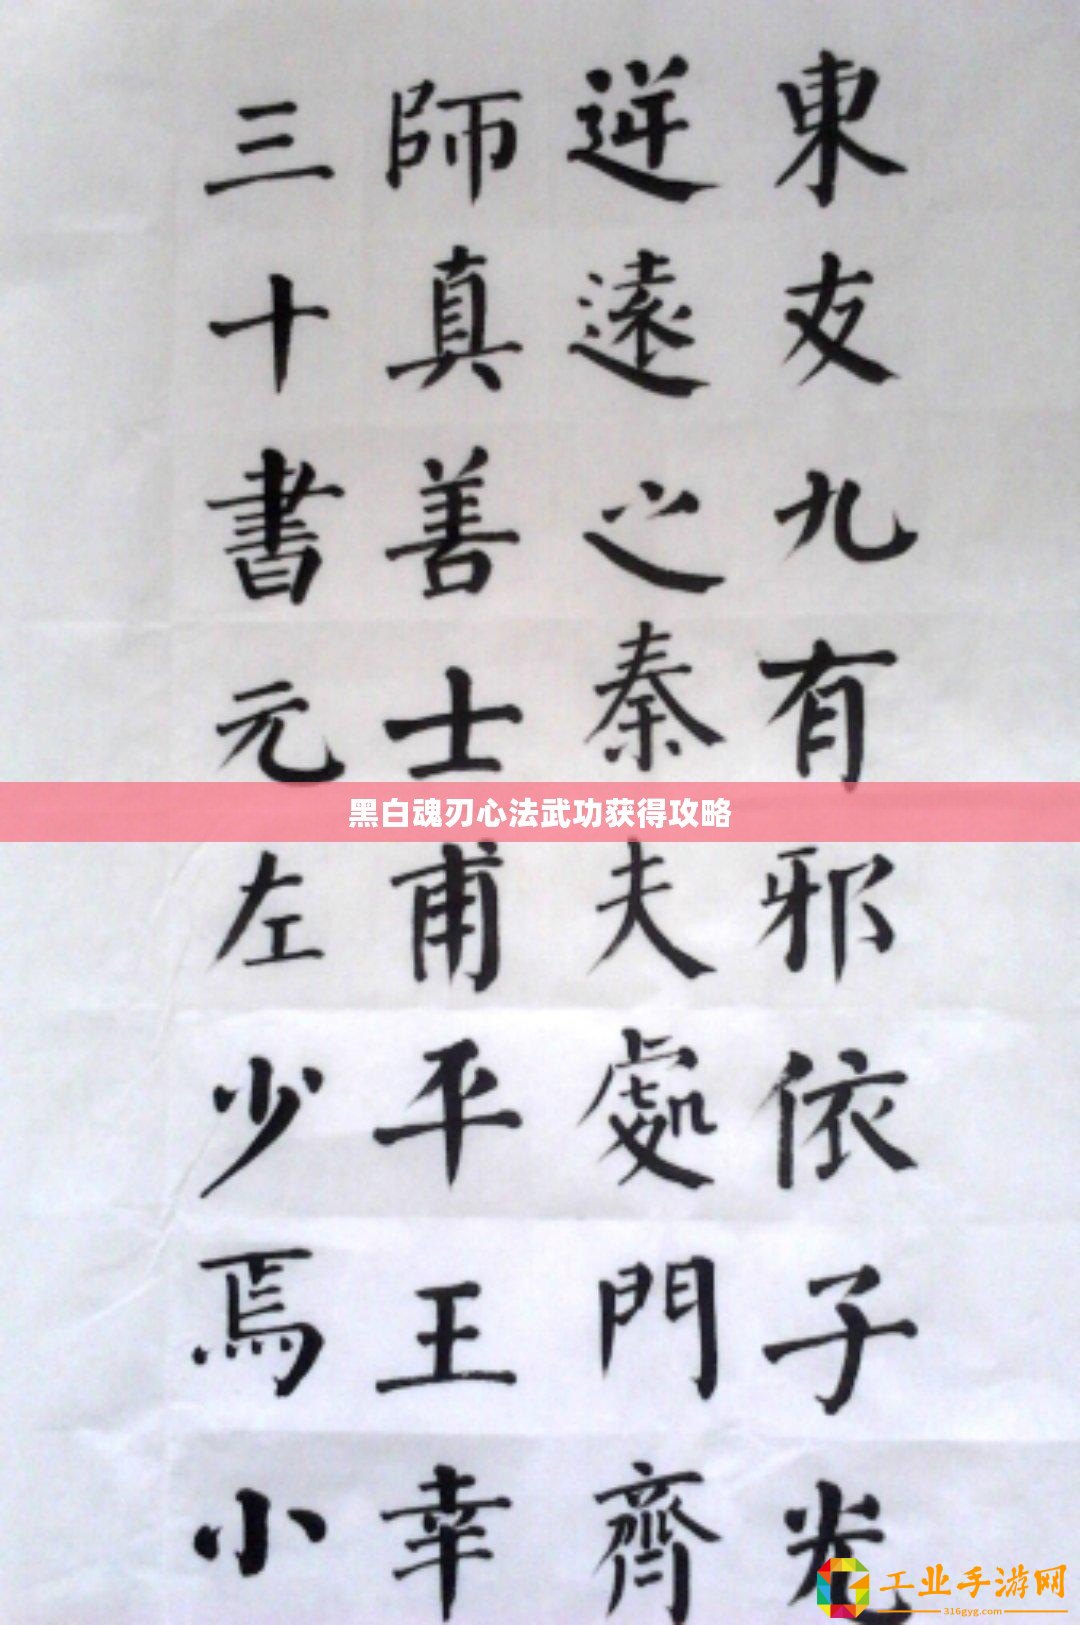 東友九有邪依子光
遠之秦夫處門齊
師真善士甫平王幸
三十書元左少焉小
黑白魂刃心法武功获得攻略
工业手游网
316gyg.com